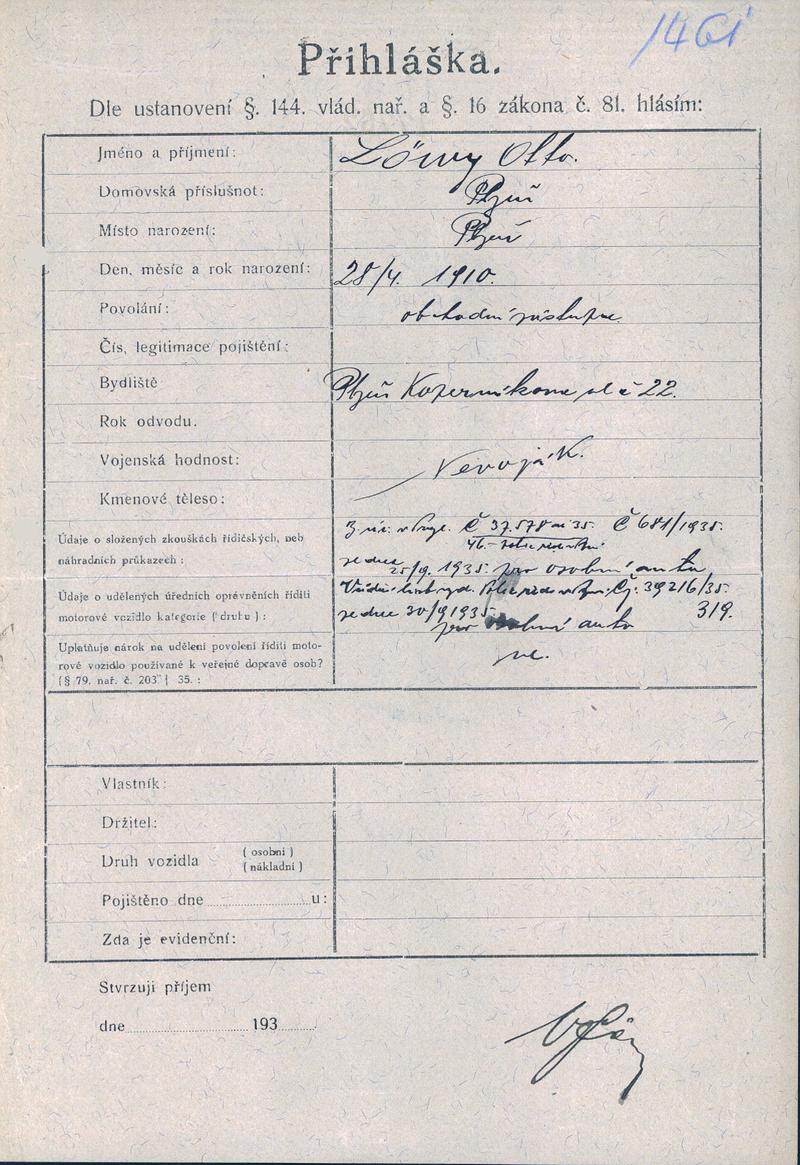 1461
Přihláška.
Dle ustanovení §. 144. vlád. nař. a §. 16 zákona č. 81. hlásím:
Jméno a příjmení: Löwy Otto.
Domovská příslušnot: Plzeň
Místo narození: Plzeň
Den, měsíc a rok narození: 28/4. 1910.
Povolání: obchodní zástupce
Čís, legitimace pojištění:
Bydliště Plzeň Koperníkova ul č 22.
Rok odvodu.
Vojenská hodnost: Nevoják.
Kmenové těleso:
Údaje o složených zkouškách řidičských, neb
náhradních průkazech:
Č 37.578 35. Č 681/1935.
ze dne 25/9. 1935. pro osobní auto
Údaje o udělených úředních oprávněních říditi
motorové vozidlo kategorie (druhu):
Čj. 39216/35.
ze dne 30/9 1935. 319.
pro osobní auto
Uplatňuje nárok na udělení povolení říditi moto-
rové vozidlo používané k veřejné dopravě osob?
(§ 79. nař. č. 203 | 35.:
ne.
Vlastník:
Držitel:
Druh vozidla (osobní)
(nákladní)
Pojištěno dne u:
Zda je evidenční:
Stvrzuji příjem
dne 193